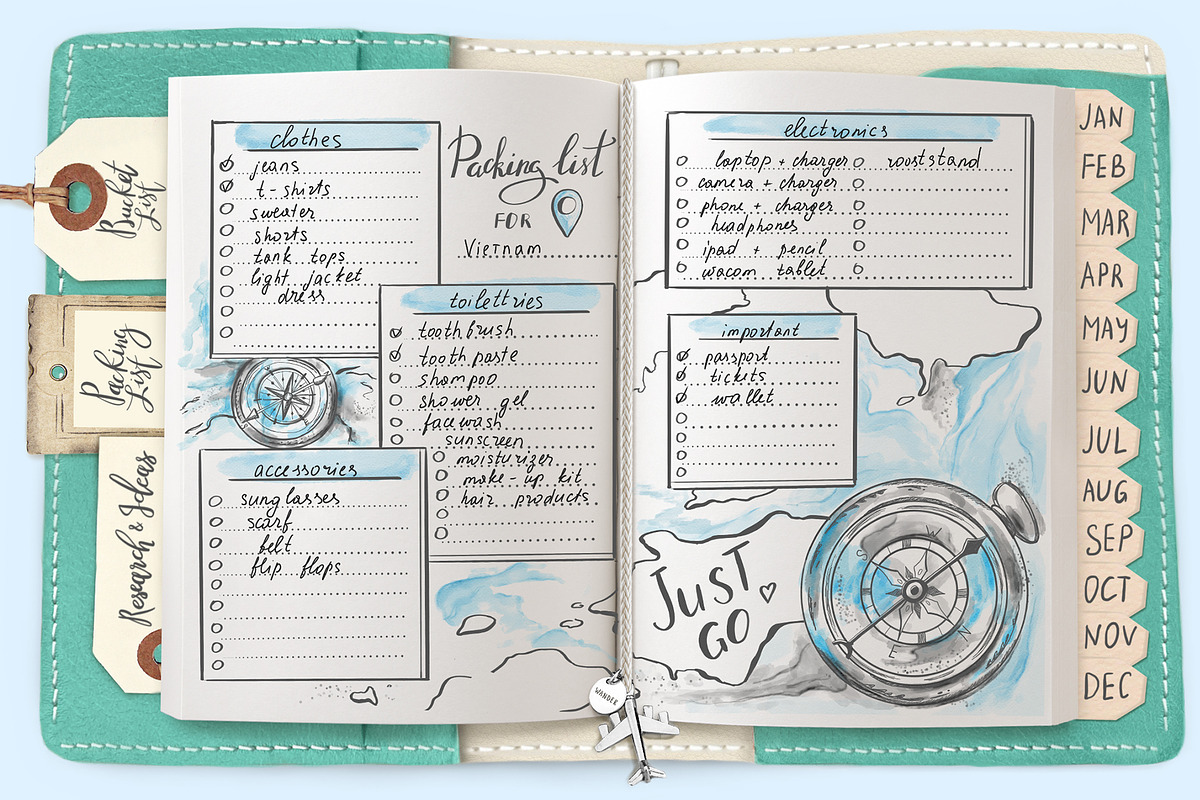 Bucket
List
Packing
List
Research & Ideas
clothes
jeans
t-shirts
sweater
shorts
tank tops
light jacket
dress
Packing list
FOR
Vietnam
toilettries
toothbrush
tooth paste
shampoo
shower gel
face wash
sunscreen
moisturizer
make-up kit
hair products
accessories
sunglasses
scarf
belt
flip flops
electronics
laptop + charger rooststand
camera + charger
phone + charger
headphones
ipad + pencil
wacom tablet
important
passport
tickets
wallet
JUST
GO
S
W
N
E
WANDER
JAN
FEB
MAR
APR
MAY
JUN
JUL
AUG
SEP
OCT
NOV
DEC